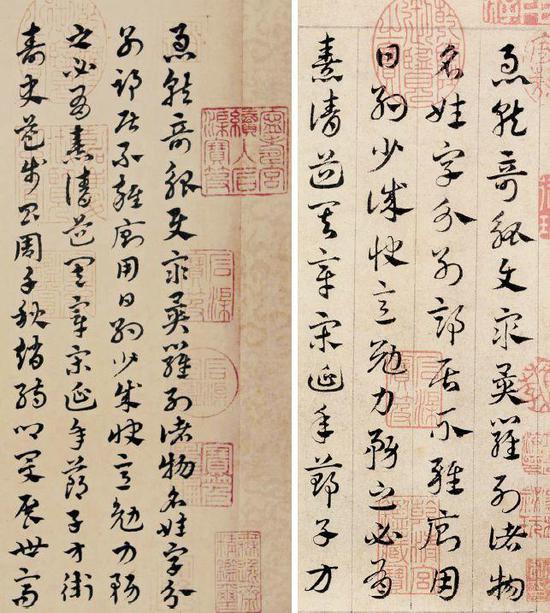 急就奇觚與眾異羅列諸物名姓字分
別部居不雜廁用日約少誠快意勉力務
之必有憙請道其章宋延年鄭子方衛
益壽史步昌周千秋趙孺卿爰展世高
急就奇觚與眾異羅列諸物
名姓字分別部居不雜廁用
日約少誠快意勉力務之必有
憙請道其章宋延年鄭子方